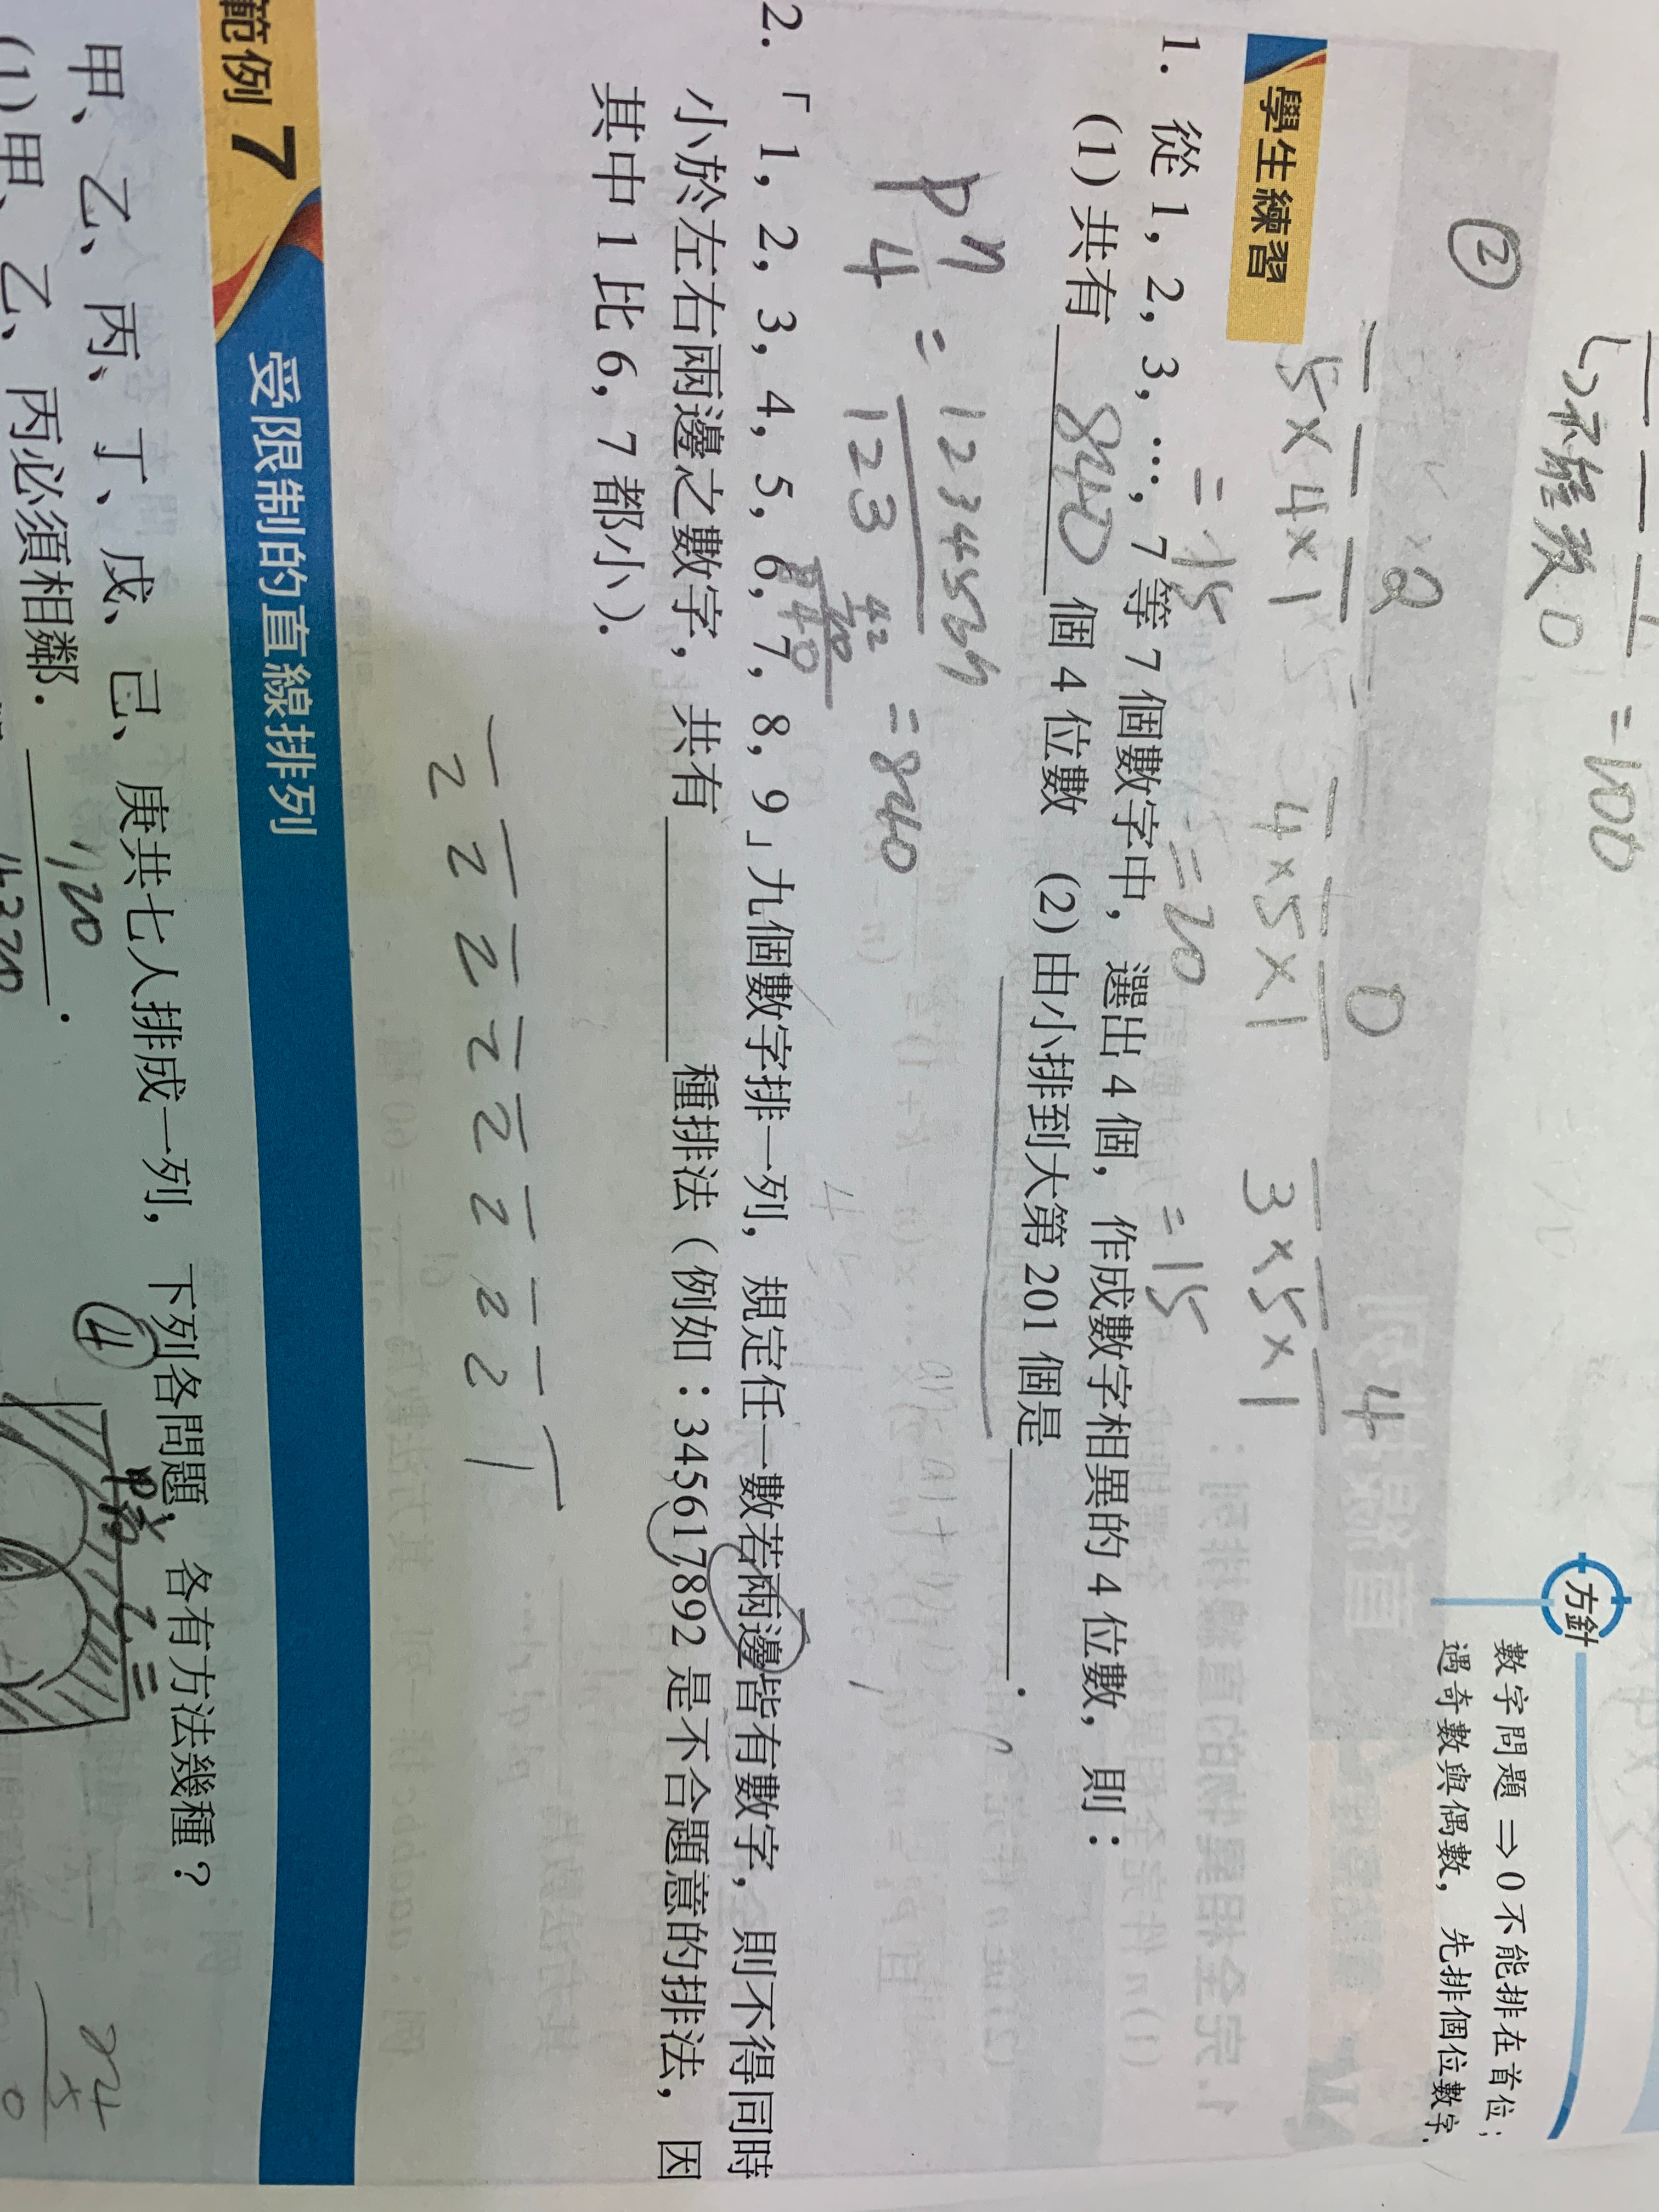 ↳不能放0
=100
②
×2
0
4
5×4×1
4×5×1
3×5×1
=20
=15
方針
數字問題⇒0不能排在首位;
遇奇數與偶數,先排個位數字.
學生練習
1. 從 1, 2, 3, …, 7 等 7 個數字中,選出 4 個,作成數字相異的 4 位數,則:
(1)共有 840 個 4 位數 (2)由小排到大第 201 個是
.
P 7 4 = 1234567 / 123 = 840
2.「1, 2, 3, 4, 5, 6, 7, 8, 9」九個數字排一列,規定任一數若兩邊皆有數字,則不得同時
小於左右兩邊之數字,共有 種排法(例如:345617892 是不合題意的排法,因
其中 1 比 6, 7 都小).
2 2 2 2 2 2 2 2 1
範例 7 受限制的直線排列
甲、乙、丙、丁、戊、己、庚共七人排成一列,下列各問題,各有方法幾種?
(1)甲、乙、丙必須相鄰. 720 .
4320
④
24
×5
0